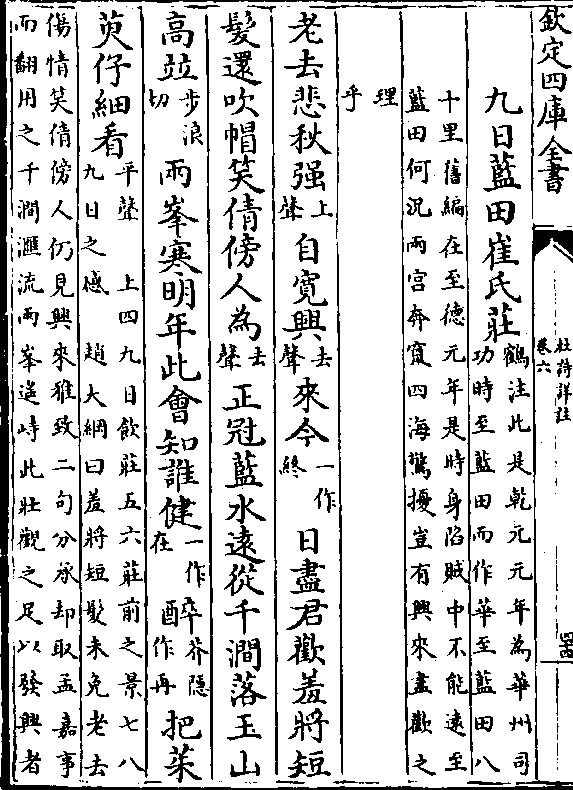 欽定四庫全書
杜詩詳註
卷六
九日藍田崔氏莊
鶴注此是乾元元年為華州司
功時至藍田而作華至藍田八
十里舊編在至德元年是時身陷賊中不能遠至
藍田何況兩宮奔竄四海驚擾豈有興來盡歡之
理
乎
老去悲秋强上聲自寛興去聲來今一作終日盡君歡羞將短
髮還吹帽笑倩傍人為去聲正冠藍水遠從千澗落玉山
高竝步浪切兩峯寒明年此會知誰健一作在醉芥隱作再把茱
萸仔細看
平聲 上四九日飲莊五六莊前之景七八
九日之感 趙大綱曰羞將短髮未免老去
傷情笑倩傍人仍見興來雅致二句分承却取孟嘉事
而翻用之千澗滙流兩峯遥峙此壯觀之足以發興者